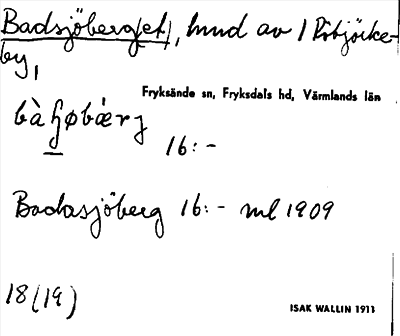 Badsjöberg(et), hmd av / Röbjörke-
by,
Fryksände sn, Fryksdals hd, Värmlands län
16:-
Badasjöberg 16:- ml 1909
18(19)
ISAK WALLIN 1911